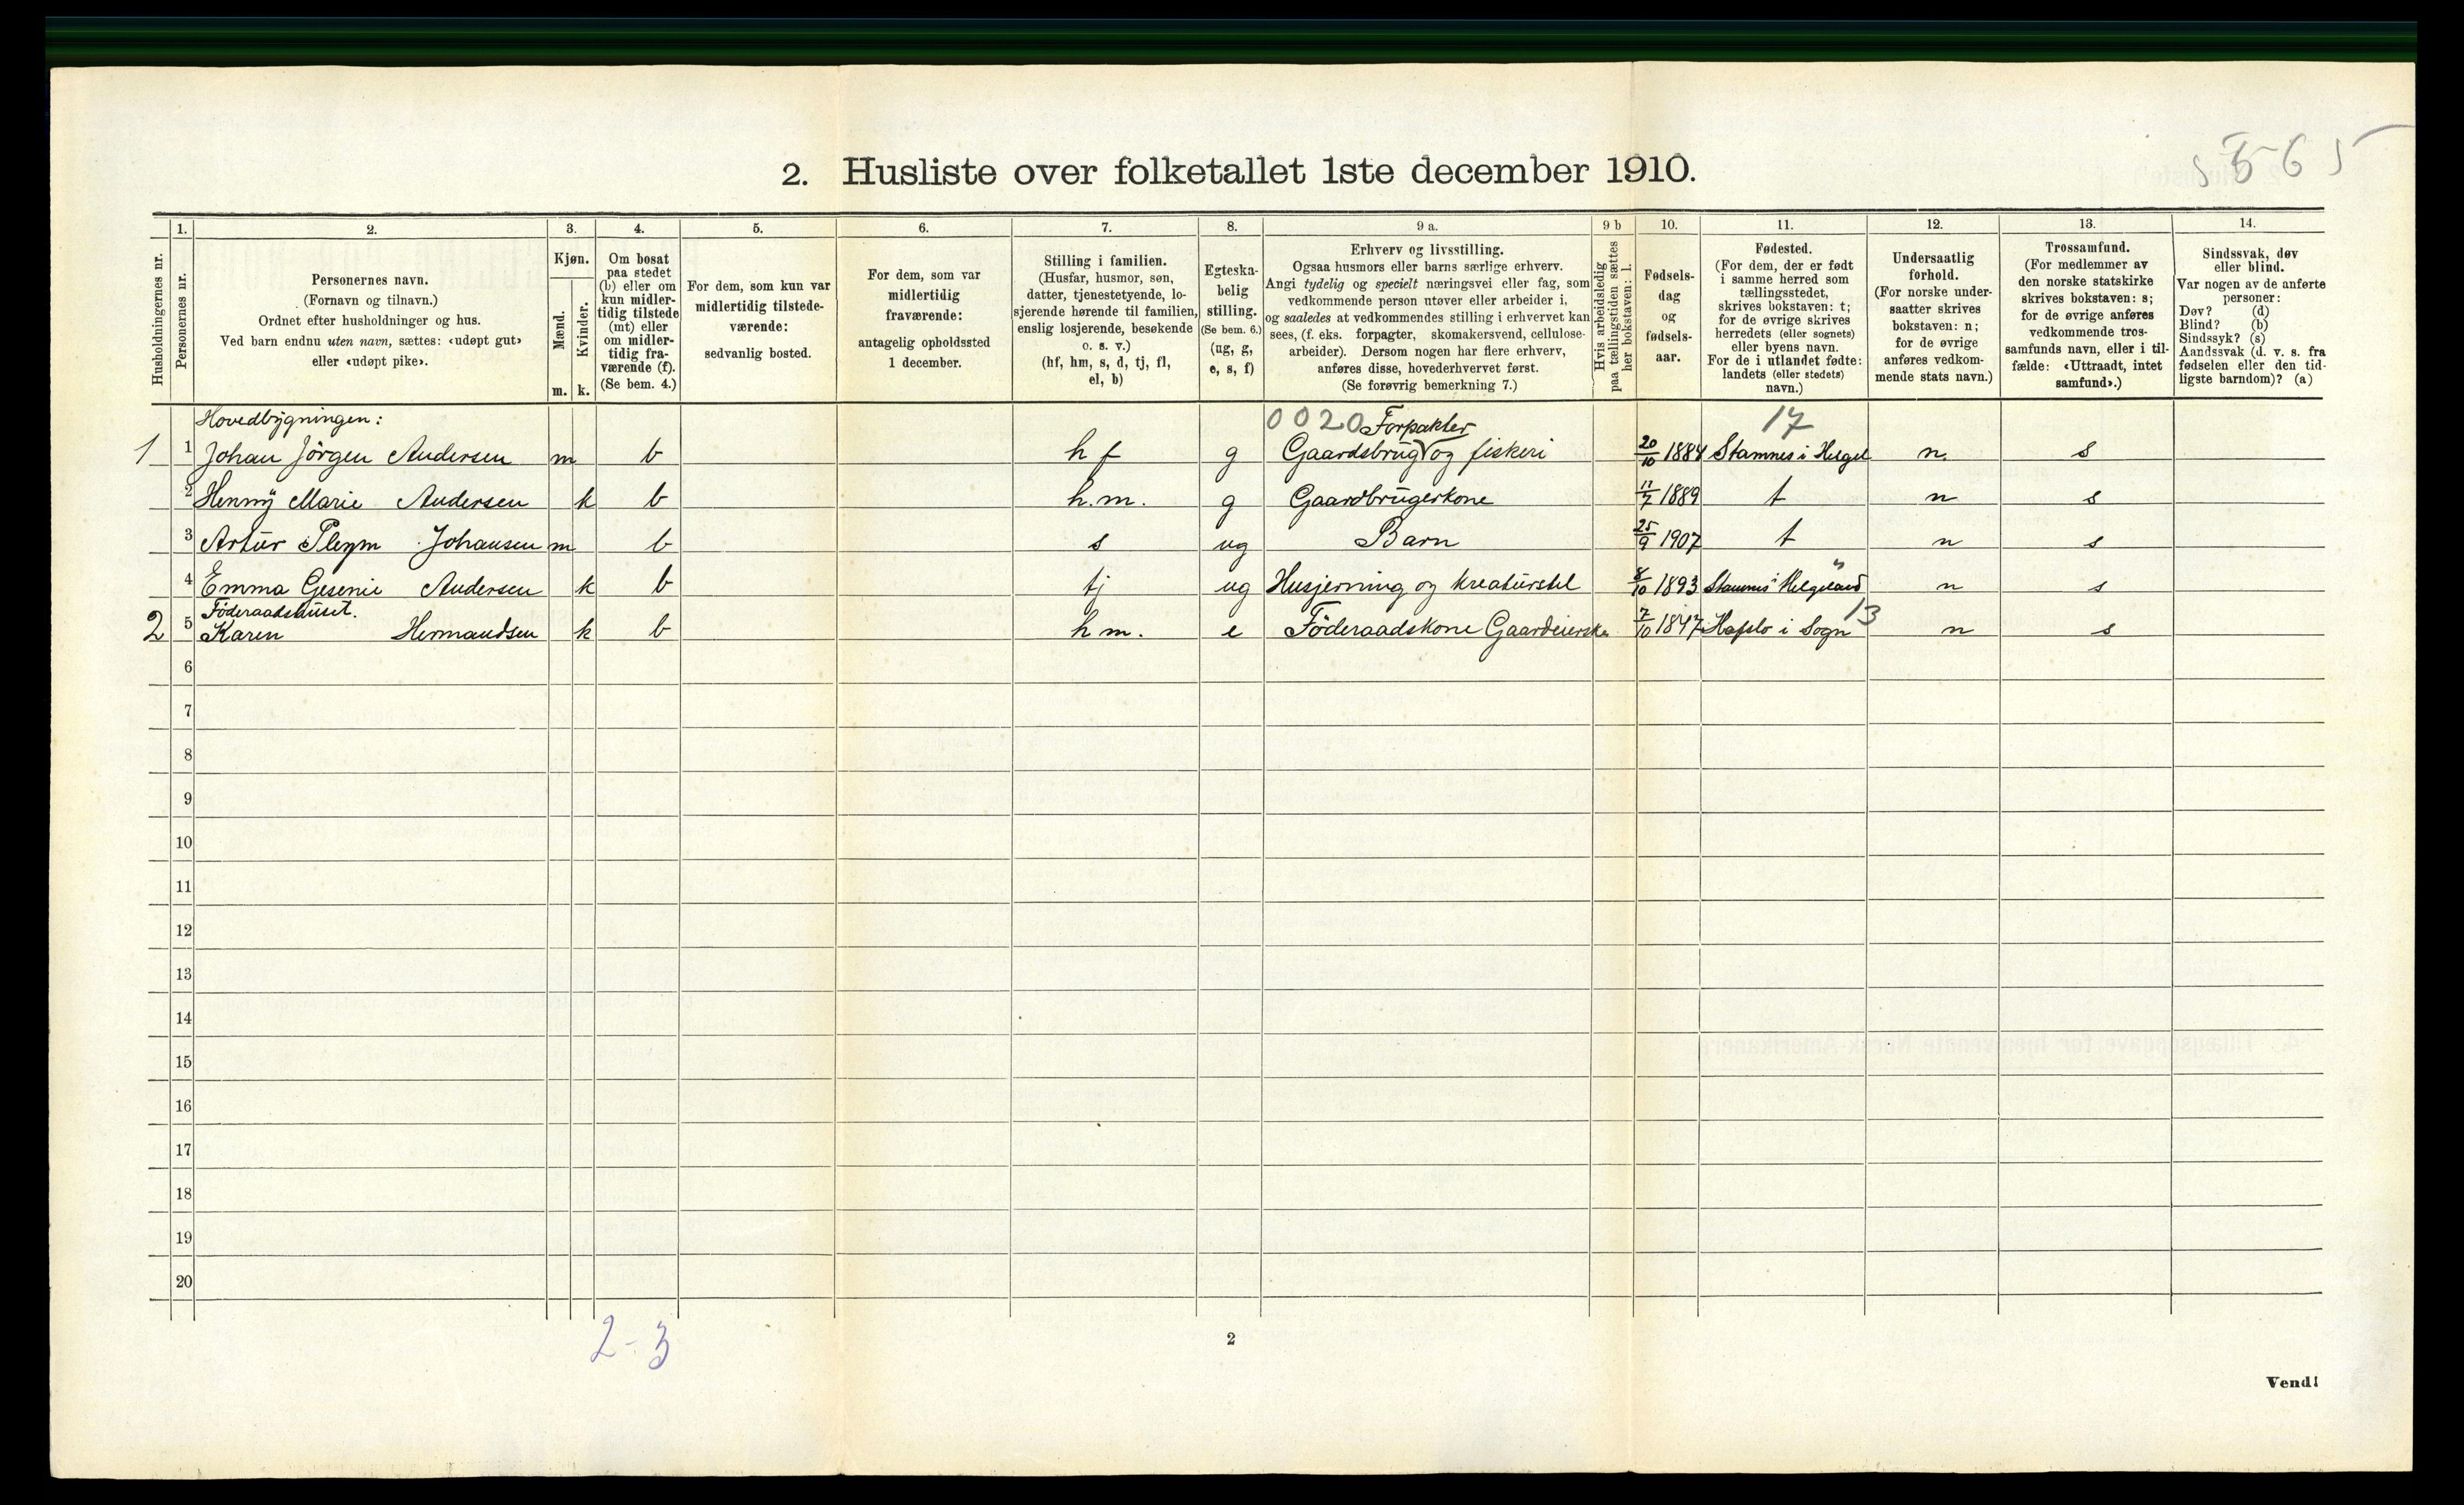 5 5 6 5
2. Husliste over folketallet 1ste december 1910.
1. 2. 3. 4. 5. 6. 7. 8. 9 a. 9 b 10. 11. 12. 13. 14.
Husholdningernes nr.
Personernes nr.
Personernes navn.
(Fornavn og tilnavn.)
Ordnet efter husholdninger og hus.
Ved barn endnu uten navn, sættes: «udøpt gut»
eller «udøpt pike».
Kjøn.
Mænd.
Kvinder.
m. k.
Om bosat
paa stedet
(b) eller om
kun midler-
tidig tilstede
(mt) eller
om midler-
tidig fra-
værende (f).
(Se bem. 4.)
For dem, som kun var
midlertidig tilstede-
værende:
sedvanlig bosted.
For dem, som var
midlertidig
fraværende:
antagelig opholdssted
1 december.
Stilling i familien.
(Husfar, husmor, søn,
datter, tjenestetyende, lo-
sjerende hørende til familien,
enslig losjerende, besøkende
o. s. v.)
(hf, hm, s, d, tj, fl,
el, b)
Egteska-
belig
stilling.
(Se bem. 6.)
(ug, g,
e, s, f)
Erhverv og livsstilling.
Ogsaa husmors eller barns særlige erhverv.
Angi tydelig og specielt næringsvei eller fag, som
vedkommende person utøver eller arbeider i,
og saaledes at vedkommendes stilling i erhvervet kan
sees, (f. eks. forpagter, skomakersvend, cellulose-
arbeider). Dersom nogen har flere erhverv,
anføres disse, hovederhvervet først.
(Se forøvrig bemerkning 7.)
Hvis arbeidsledig
paa tællingstiden sættes
her bokstaven: l.
Fødsels-
dag
og
fødsels-
aar.
Fødested.
(For dem, der er født
i samme herred som
tællingsstedet,
skrives bokstaven: t;
for de øvrige skrives
herredets (eller sognets)
eller byens navn.
For de i utlandet fødte:
landets (eller stedets)
navn.)
Undersaatlig
forhold.
(For norske under-
saatter skrives
bokstaven: n;
for de øvrige
anføres vedkom-
mende stats navn.)
Trossamfund.
(For medlemmer av
den norske statskirke
skrives bokstaven: s;
for de øvrige anføres
vedkommende tros-
samfunds navn, eller i til-
fælde: «Uttraadt, intet
samfund».)
Sindssvak, døv
eller blind.
Var nogen av de anførte
personer:
Døv? (d)
Blind? (b)
Sindssyk? (s)
Aandssvak (d. v. s. fra
fødselen eller den tid-
ligste barndom)? (a)
Hovedbygningen: 0020 Forpakter 17
1 1 Johan Jörgen Andersen m b h f g Gaardsbrug og fiskeri 20/10 1884 Stamnes i Helgel n. s
2 Henny Marie Andersen k b h.m. g Gaardbrugerkone 11/7 1889 t n s
3 Artur Pleym Johansen m b s ug Barn 25/9 1907 t n s
4 Emma Gesenie Andersen k b tj ug Husjerning og kreaturstel 8/10 1893 Stamnes i Helgeland n s
Föderaadshuset. 13
2 5 Karen Hermandsen k b h m. e Föderaadskone Gaardeierske 7/10 1847 Hafslo i Sogn n s
6
7
8
9
10
11
12
13
14
15
16
17
18
19
20
2-3
2
Vend!